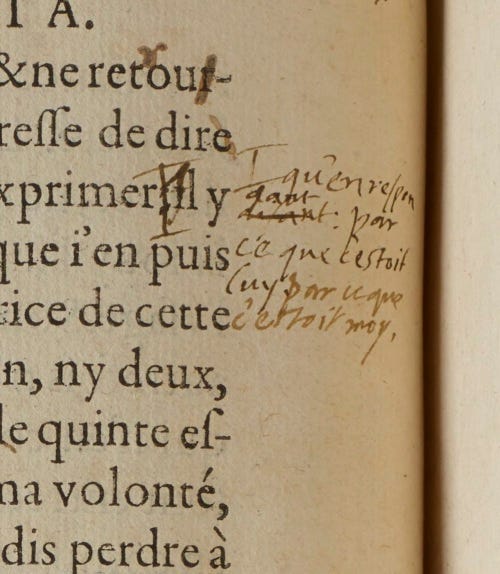 T A.
&ne retour-
reſſe de dire
xprimer, il y
que i'en puis
rice de cette
n, ny deux,
le quinte eſ-
ma volonté,
dis perdre à
qu'en respon
dant: par
ce que c'estoit
luy par ce que
c'estoit moy.